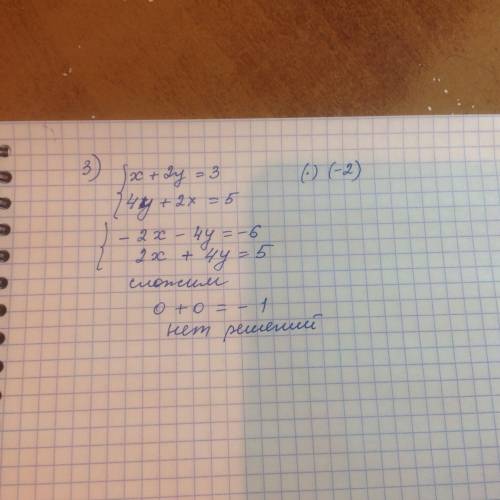 3) { x + 2y = 3 (·) (-2)
4y + 2x = 5
{ - 2x - 4y = -6
2x + 4y = 5
сложим
0 + 0 = - 1
нет решений